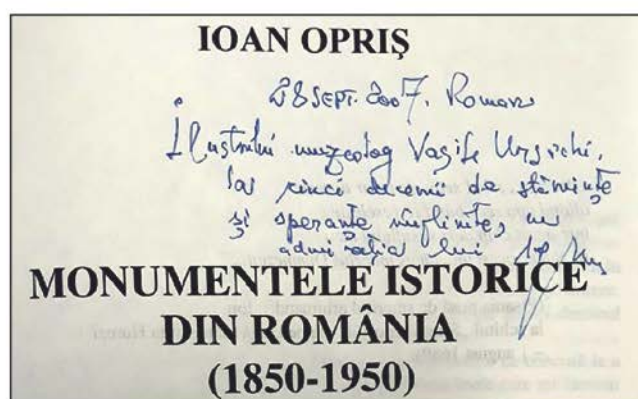 IOAN OPRIȘ
28 SEPT. 2007. Roman
Ilustrului muzeolog Vasile Ursachi,
la cinci decenii de
și speranțe cu
admirația lui
MONUMENTELE ISTORICE
DIN ROMÂNIA
(1850-1950)